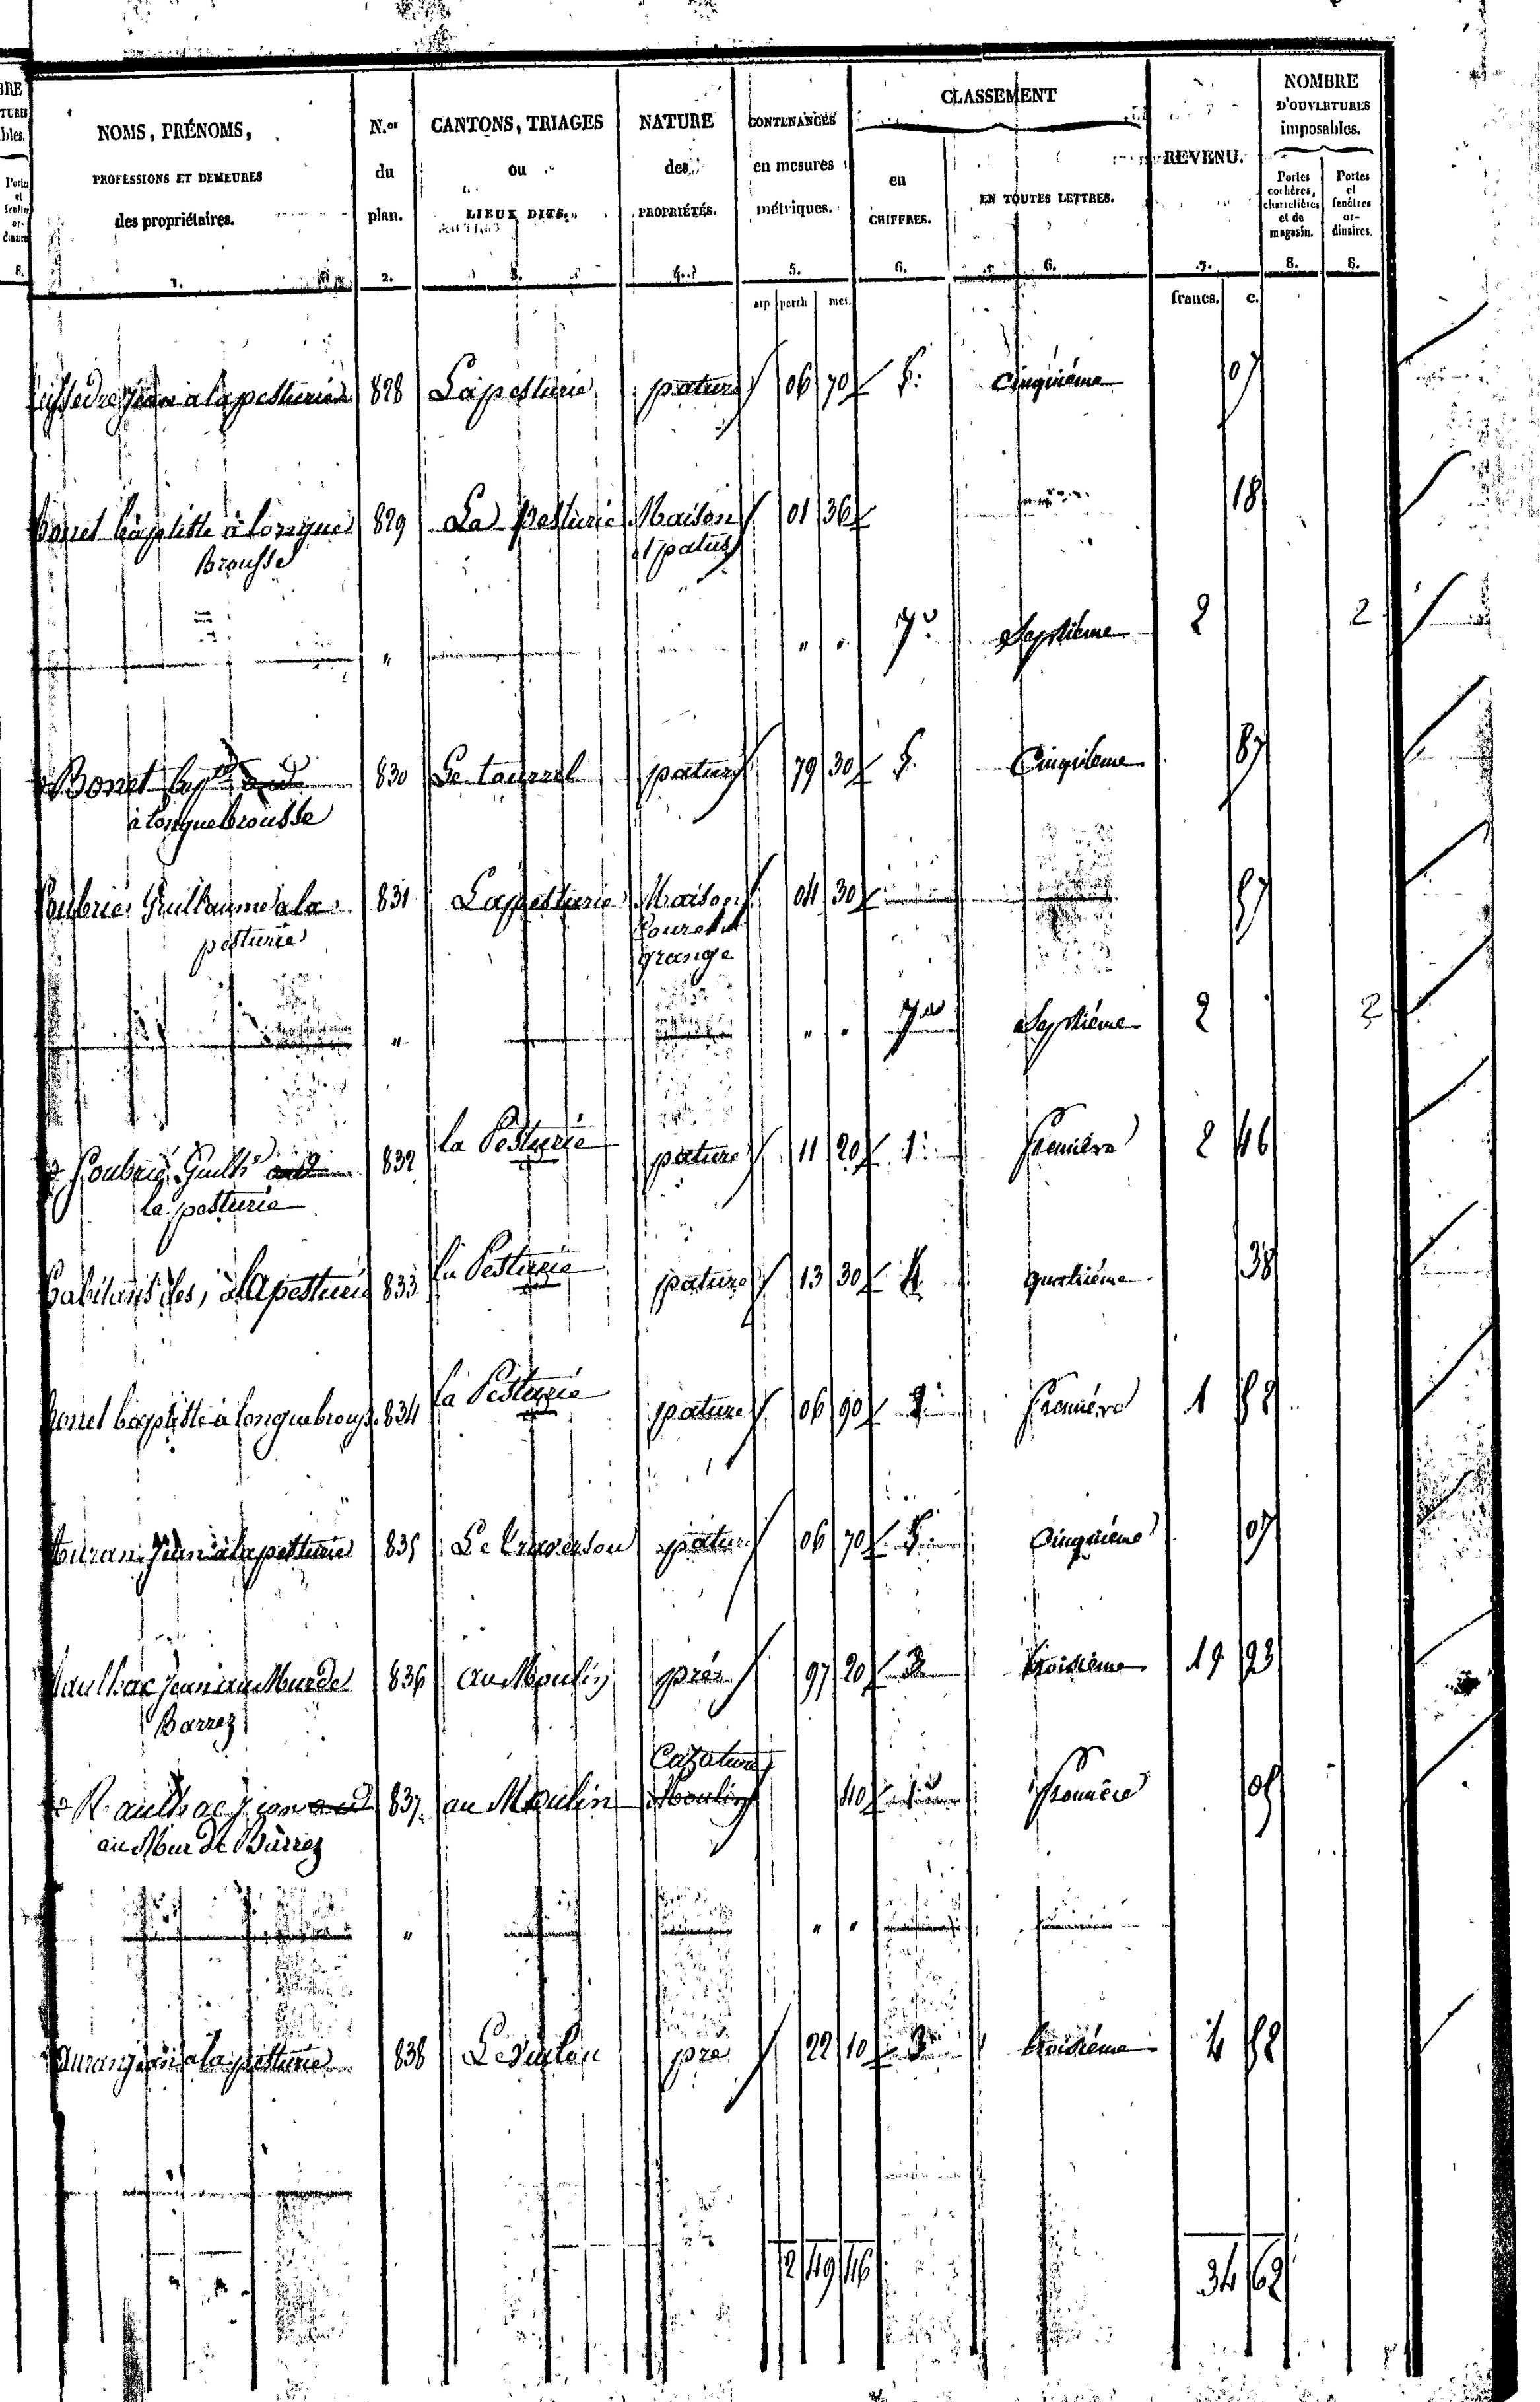 NOMS, PRÉNOMS, PROFESSIONS ET DEMEURES des propriétaires. 1.
N.os du plan. 2.
CANTONS, TRIAGES ou LIEUX DITS. 3.
NATURE des PROPRIÉTÉS. 4.
CONTENANCES en mesures métriques. 5.
CLASSEMENT
en CHIFFRES. 6.
EN TOUTES LETTRES. 6.
REVENU. 7.
NOMBRE D'OUVERTURES imposables.
Portes cochères, charretières et de magasin. 8.
Portes et fenêtres ordinaires. 8.
arp perch met. francs. c.
Jean à lapesturie 828 Lapesturie pature 06 70 5. Cinquième 07
Bonet baptiste à longue 829 La Pesturie Maison 01 36 18
Brousse et patus
" " " 7e Septième 2 2
Bonet bapte 830 Le tourrel pature 79 30 5. Cinquième 87
à longuebrousse
Guillaume a la 831 Lapesturie Maison 04 30 57
pesturie Cour et
grange
" " " 7e Septième 2 2
832 la Pesturie pature 11 20 1. Première 2 46
la pesturie
habitans les, à lapesturie 833 la Pesturie pature 13 30 4. quatrième 38
Bonet baptiste à longuebrousse 834 la Pesturie pature 06 90 1. Première 1 52
Jean à lapesturie 835 pature 06 70 5. Cinquième 07
Raulhac Jean au Mur de 836 au Moulin pré 97 20 3 troisième 19 93
Barrez
Raulhac Jean 837 au Moulin Moulin 40 1e Première 05
au Mur de Barrez
" " "
à lapesturie 838 pré 22 10 3 troisième 4 52
2 49 46 34 62